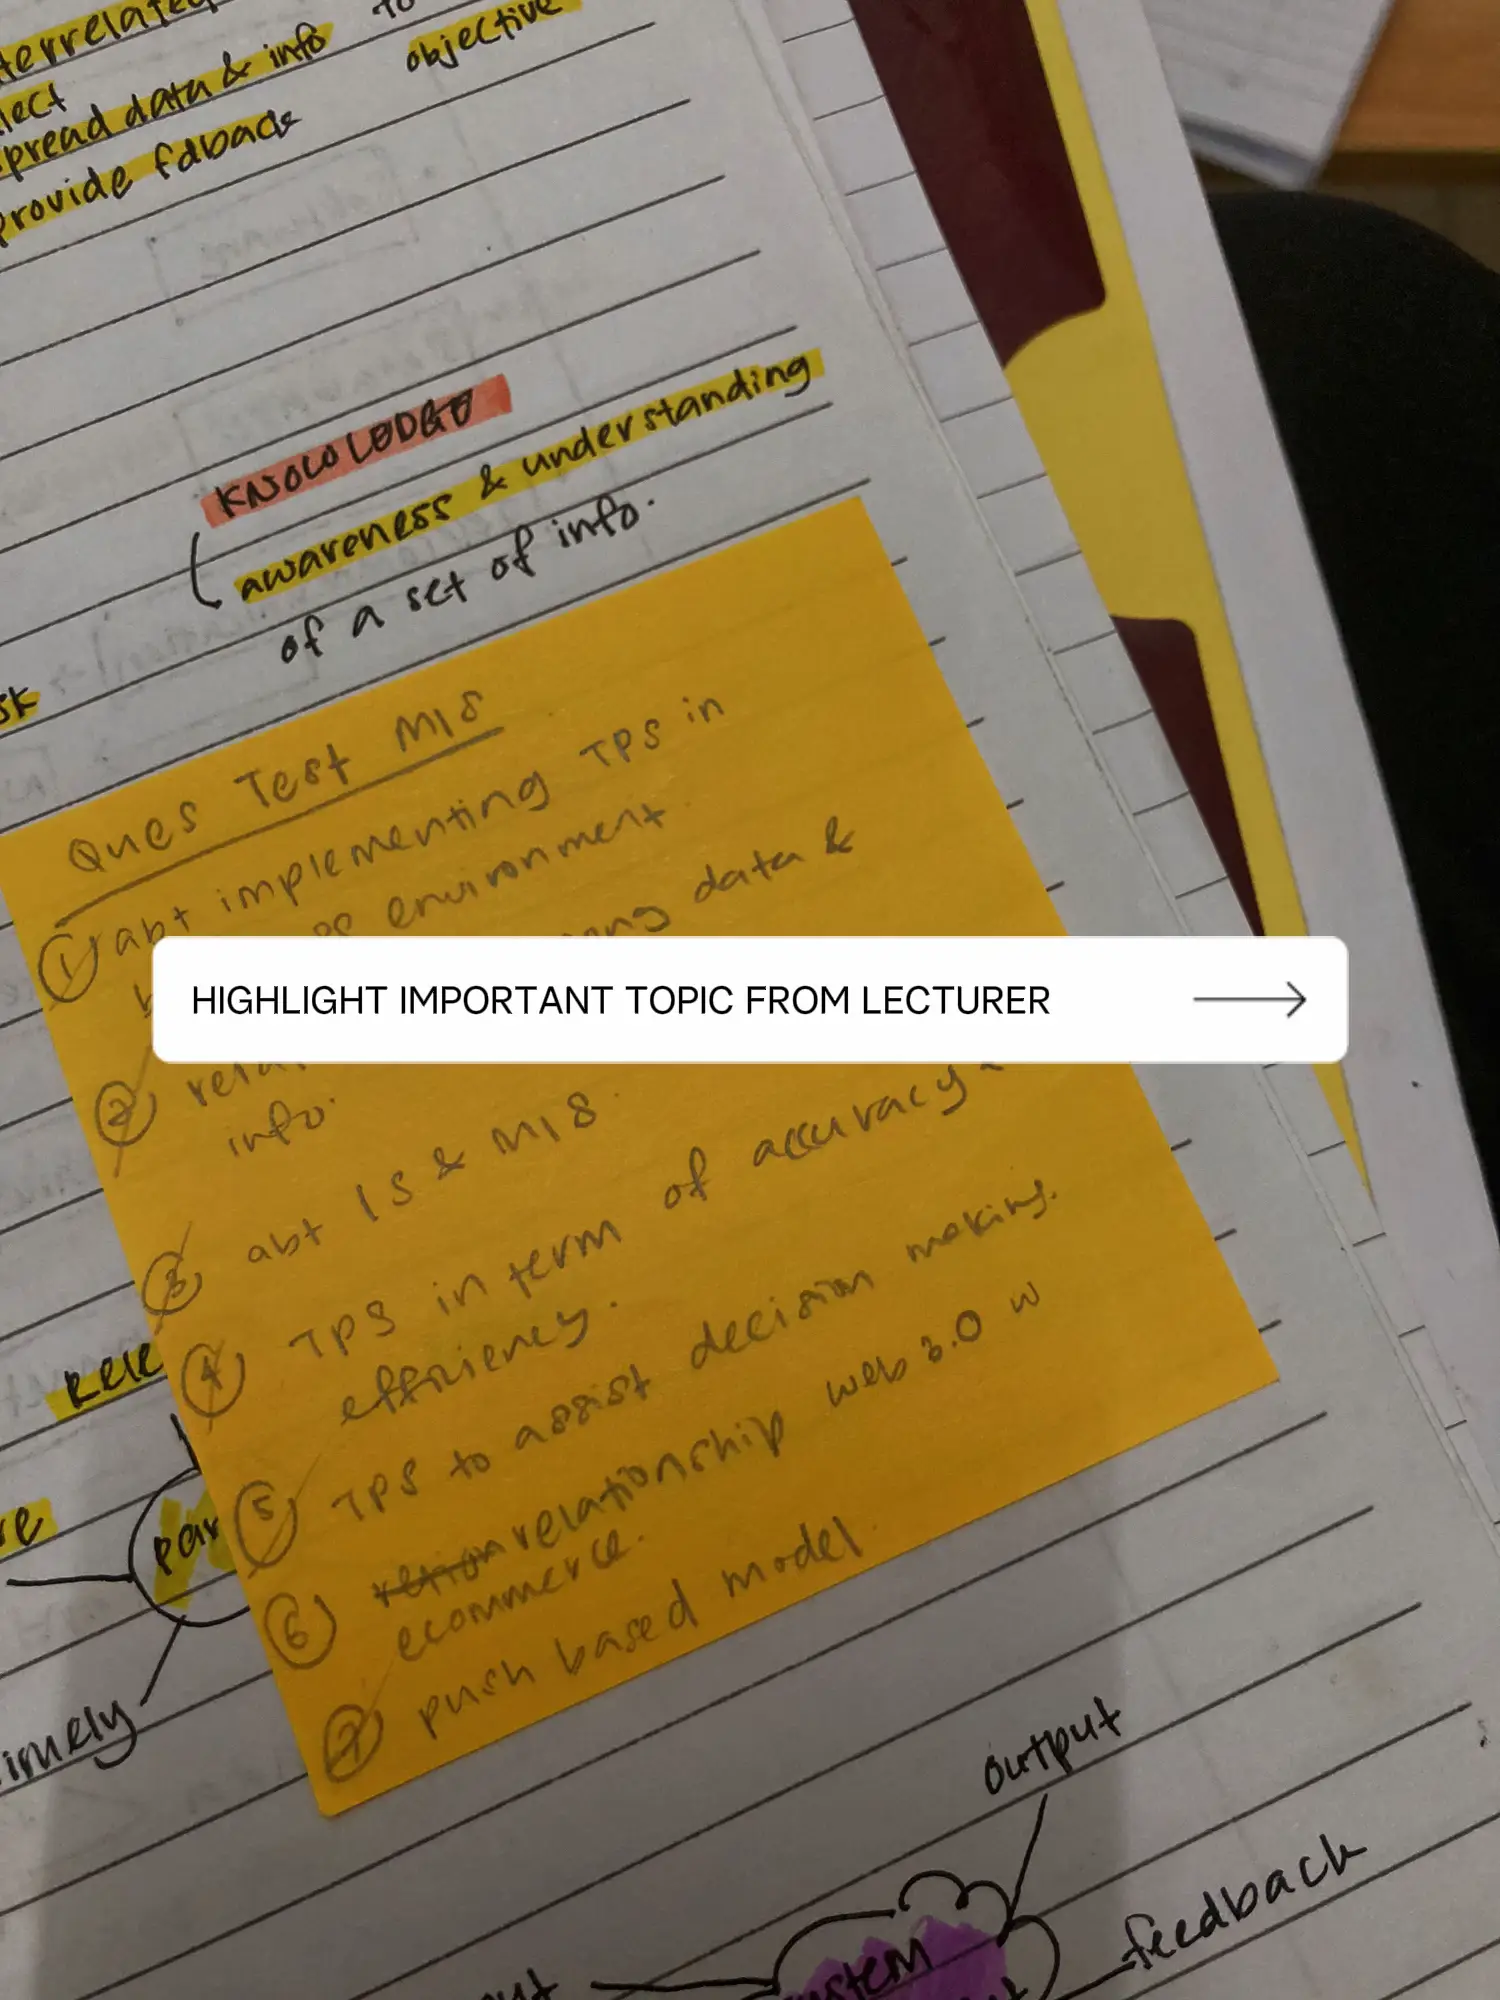 objective
data & info
spread
provide fdback
KNOWLEDGE
awareness & understanding
of a set of info.
Ques Test MIS
① abt implementing TPS in
environment
data &
HIGHLIGHT IMPORTANT TOPIC FROM LECTURER
②
info.
③ abt IS & MIS.
④ TPS in term of accuracy
efficiency.
⑤ TPS to assist decision making.
⑥ relationship web 3.0 w
ecommerce.
⑦ push based model
output
feedback